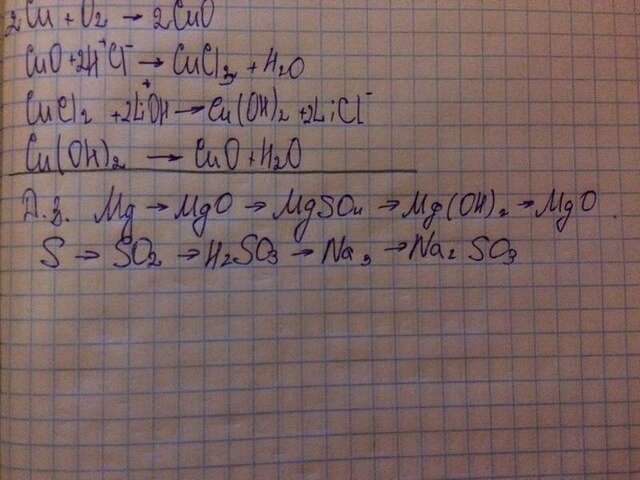 2Cu + O₂ → 2CuO
CuO + 2H⁺Cl⁻ → CuCl₂ + H₂O
CuCl₂ + 2Li⁺OH → Cu(OH)₂ + 2LiCl⁻
Cu(OH)₂ → CuO + H₂O
Д.з. Mg → MgO → MgSO₄ → Mg(OH)₂ → MgO.
S → SO₂ → H₂SO₃ → Na₃ → Na₂SO₃